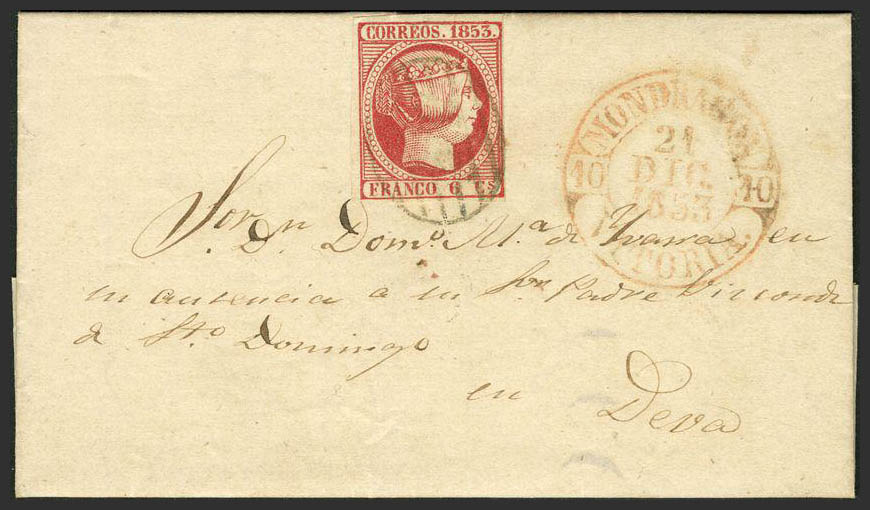 CORREOS. 1853.
FRANCO 6 Cs
MONDRAGON
21
DIC.
1853
10 10
VITORIA.
Sor. Dn. Domo. Ma. de Ybarra, en
su ausencia a su Sor. Padre Vizconde
de Sto. Domingo
en Deva